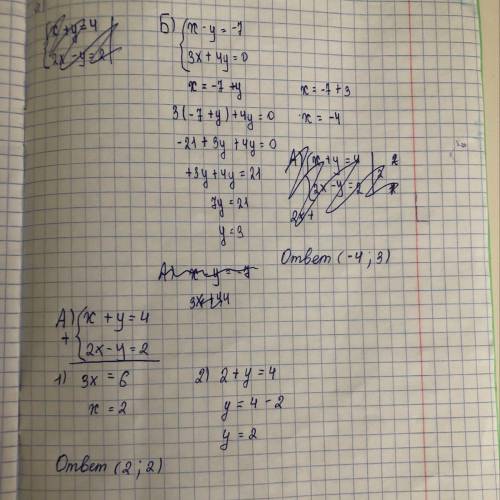 x+y=4
2x-y=2
Б) { x-y=-7
3x+4y=0
x=-7+y
3(-7+y)+4y=0
-21+3y+4y=0
+3y+4y=21
7y=21
y=3
x=-7+3
x=-4
А) { x+y=4
2x-y=2
2x+
Ответ (-4;3)
А) x-y=-7
3x+4y
А) { x+y=4
+ 2x-y=2
1) 3x=6
x=2
2) 2+y=4
y=4-2
y=2
Ответ (2;2)